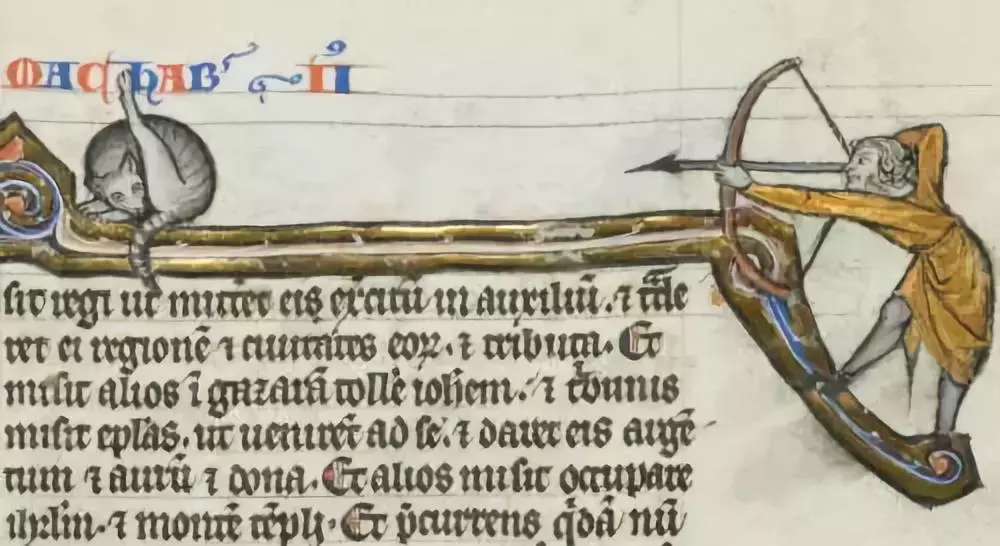 MACHAB II
sit regi ut mittet eis ex̄citū in auxiliū. ⁊ t̄de
ret ei regionē ⁊ ciuitates eoꝝ. ⁊ tributa. Et
misit alios ī gazarā tollē iohem. ⁊ t̄bunis
misit ep̄las. ut uenirēt ad se. ⁊ daret eis argē
tum ⁊ aurū ⁊ dona. Et alios misit occupare
ihrlm. ⁊ montē tēpli. Et p̄currens q̄dā nū